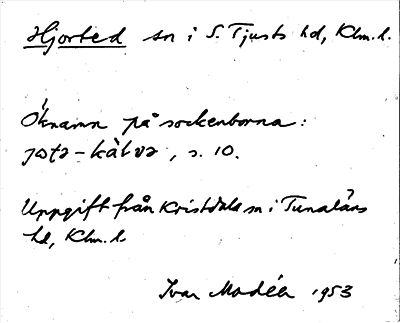 Hjorted sn i S. Tjusts hd, Klm. l.
Öknamn på sockenborna:
jota-kàlva, s. 10.
Uppgift från Kristdala sn i Tunaläns
hd, Klm. l.
Ivar Modéer 1953